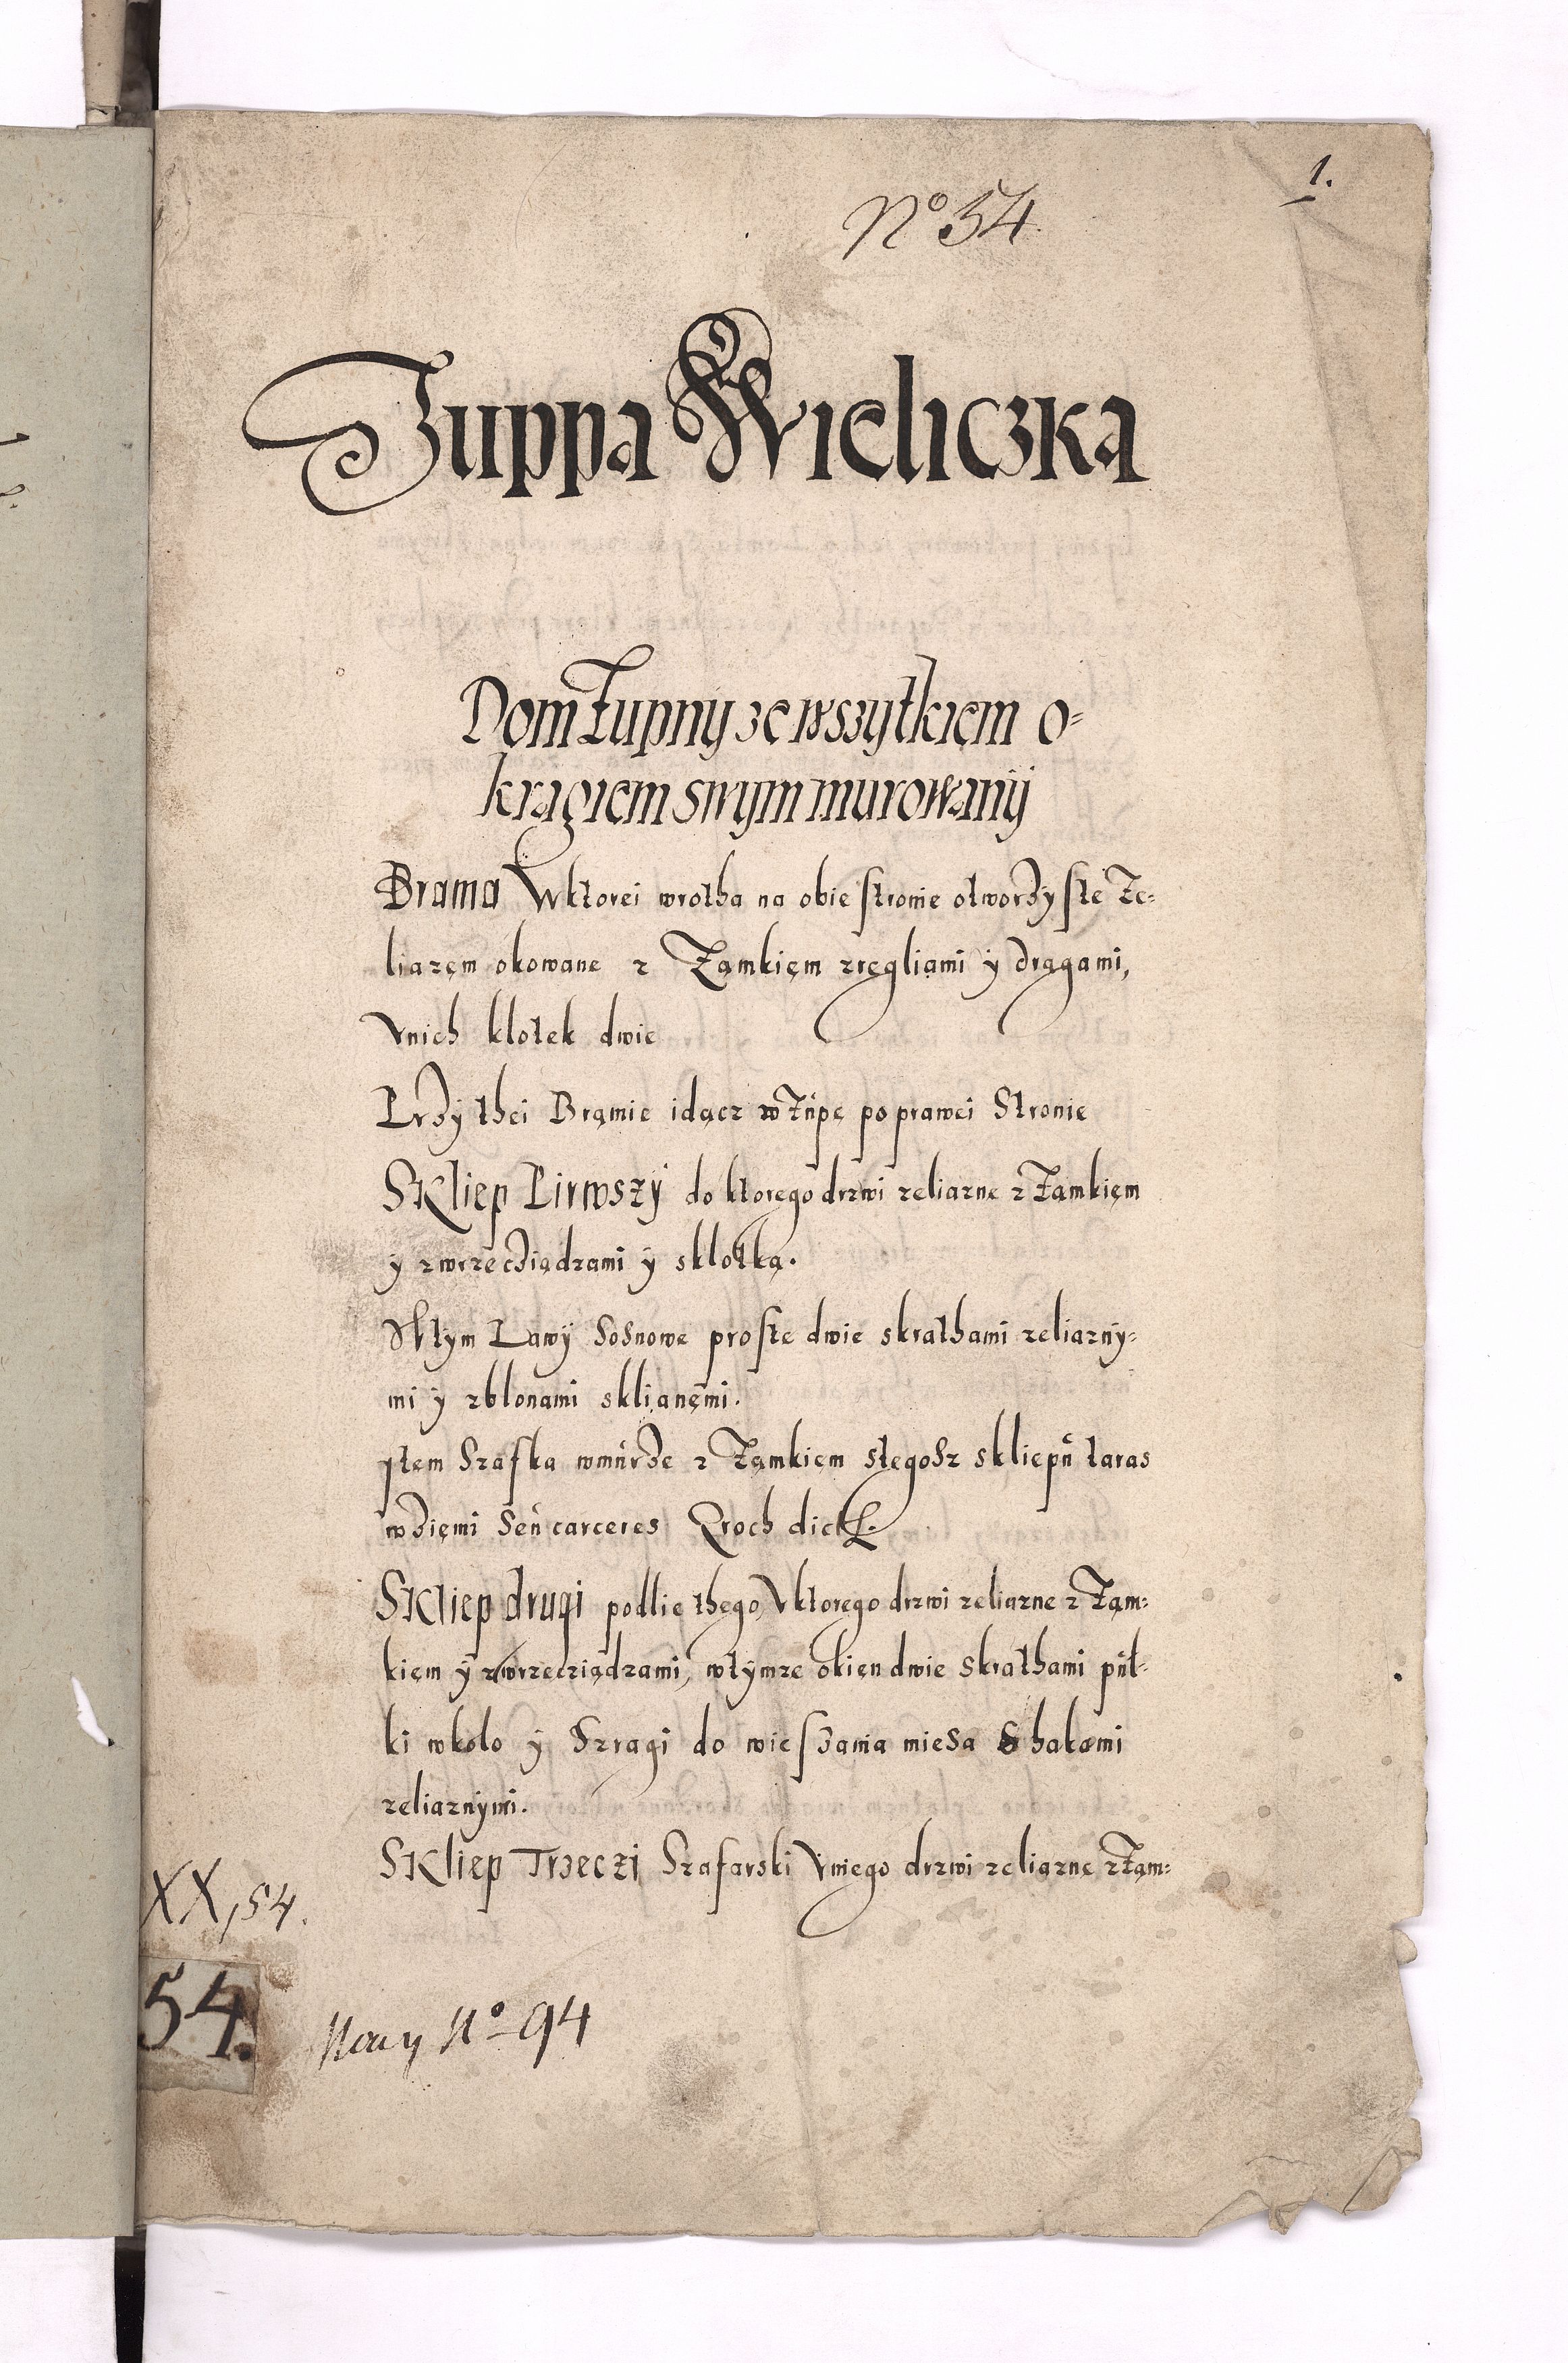 1.
No 54
Zuppa Wieliczka
Dom Zupny ze wszytkiem o=
kragiem swym murowany
Brama W ktorei wrotha na obie stronie otworzyste Ze=
liazem okowane z Zamkiem z regliami y dragami,
V nich klotek dwie
Przy thei Bramie idacz w Zupe po prawei Stronie
Skliep Pirwszy do ktorego drzwi zeliazne z Zamkiem
y z wrzecziadzami y sklotka.
W tym Lawy Sosnowe proste dwie s krathami zeliazny=
mi y z blonami sklianemi.
Item Szafka w murze z Zamkiem s tegosz skliepu taras
w ziemi Seu carceres Groch
Skliep drugi podlie thego, V ktorego drzwi zeliazne z Zam=
kiem y z wrzecziadzami, w tymze okien dwie s krathami pul=
ki w kolo y Szragi do wieszania miesa S hakami
zeliaznymi.
Skliep Trzeczi Szafarski V niego drzwi zeliazne z Zam=
XX, 54.
54.
Nowy No 94